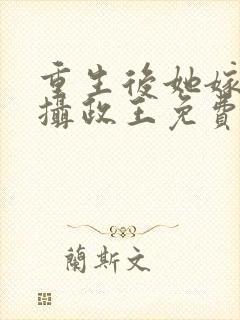 重生後她嫁
攝政王免費
蘭斯文